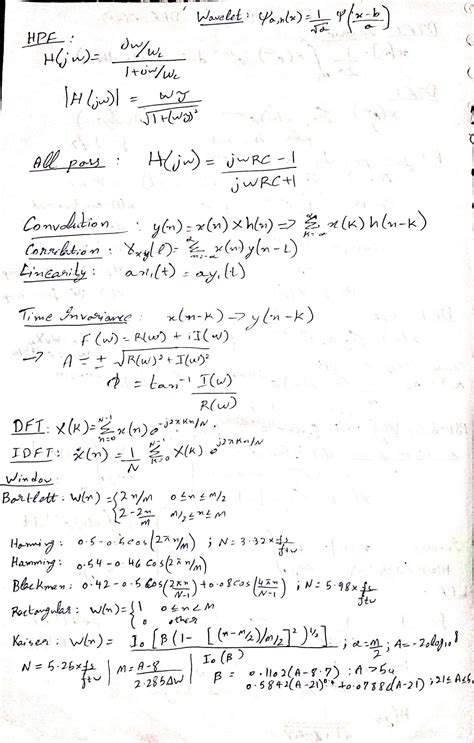 Wavelet: ψa,b(x) = 1/√a ψ(x-b/a)
HPF:
H(jw) = jw/wc / 1+jw/wc
|H(jw)| = wJ / √1+(wJ)²
All pass : H(jw) = jwRC-1 / jwRC+1
Convolution : y(n) = x(n) X h(n) => ∞Σk=-∞ x(k) h(n-k)
Correlation : γxy(l) = ∞Σm=-∞ x(n) y(n-L)
Linearity : ax,(t) = ay,(t)
Time Invariance : x(n-k) -> y(n-k)
F(w) = R(w) + iI(w)
-> A = ± √R(w)²+I(w)²
Φ = tan⁻¹ I(w)/R(w)
DFT: X(k) = N-1Σn=0 x(n) e^-j2πkn/N
IDFT: x(n) = 1/N N-1Σk=0 X(k) e^j2πkn/N
Window:
Bartlett. w(n) = {2n/m 0≤n≤m/2
{2-2n/m m/2≤n≤m
Hanning: 0.5-0.5cos(2πn/m) ; N=3.32×fs/ftw
Hamming: 0.54-0.46cos(2πn/m)
Blackman: 0.42-0.5cos(2πn/N-1)+0.08cos(4πn/N-1) ; N=5.98×fs/ftw
Rectangular: w(n)={1 0≤n<M
0 other
Kaiser: w(n) = I₀[β(1-[(n-m/2)/m/2]²)^1/2] / I₀(β) ; α=m/2 ; A=-20log₁₀δ
N=5.25×fs/ftw | M=A-8/2.285Δw | β = 0.1102(A-8.7) ; A>50
0.5842(A-21)^0.4+0.0788(A-21) ; 21≤A≤5